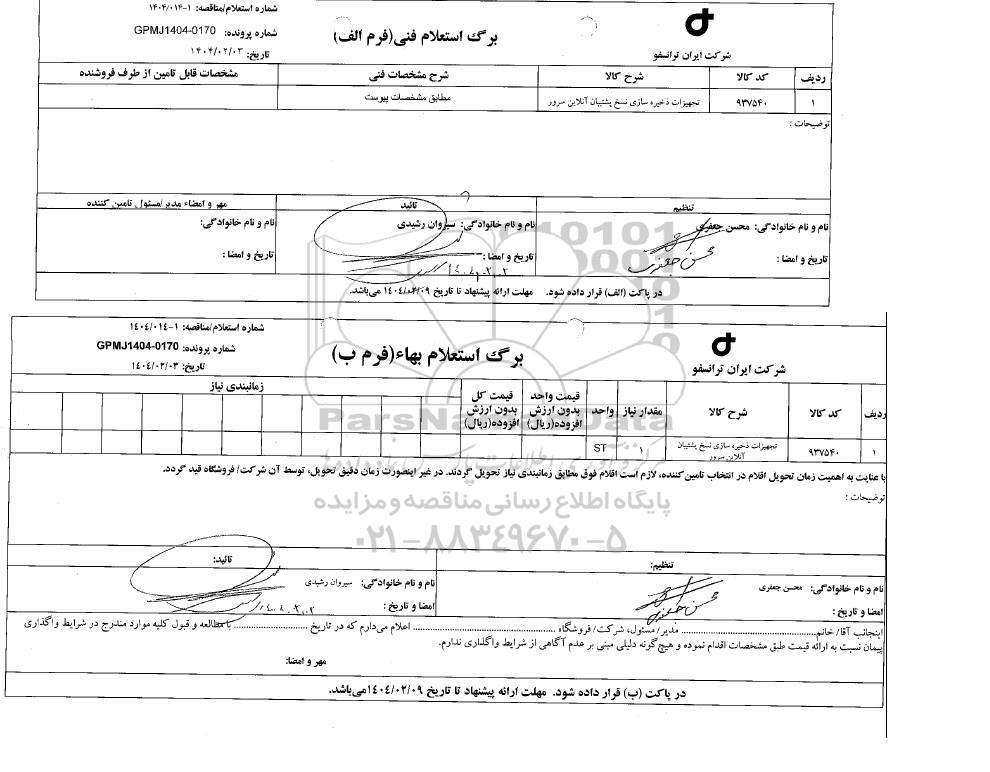 شماره استعلام/مناقصه: ۱-۱۴۰۴/۰۱۴
شماره پرونده: GPMJ1404-0170
تاریخ: ۱۴۰۴/۰۲/۰۳
برگ استعلام فنی(فرم الف)
شرکت ایران ترانسفو
ردیف کد کالا شرح کالا شرح مشخصات فنی مشخصات قابل تامین از طرف فروشنده
۱ ۹۳۷۵۴۰ تجهیزات ذخیره سازی نسخ پشتیبان آنلاین سرور مطابق مشخصات پیوست
توضیحات :
تنظیم تائید مهر و امضاء مدیر/مسئول تامین کننده
نام و نام خانوادگی: محسن جعفری نام و نام خانوادگی: سیروان رشیدی نام و نام خانوادگی:
تاریخ و امضا : محسن جعفری تاریخ و امضا : تاریخ و امضا :
در پاکت (الف) قرار داده شود. مهلت ارائه پیشنهاد تا تاریخ ۱۴۰۴/۰۲/۰۹ می‌باشد.
شماره استعلام/مناقصه: ۱-۱۴۰۴/۰۱۴
شماره پرونده: GPMJ1404-0170
تاریخ: ۱۴۰۴/۰۲/۰۳
برگ استعلام بهاء(فرم ب)
شرکت ایران ترانسفو
ردیف کد کالا شرح کالا مقدار نیاز واحد قیمت واحد بدون ارزش افزوده(ریال) قیمت کل بدون ارزش افزوده(ریال) زمانبندی نیاز
۱ ۹۳۷۵۴۰ تجهیزات ذخیره سازی نسخ پشتیبان آنلاین سرور ۱ ST
با عنایت به اهمیت زمان تحویل اقلام در انتخاب تامین‌کننده، لازم است اقلام فوق مطابق زمانبندی نیاز تحویل گردند. در غیر اینصورت زمان دقیق تحویل، توسط آن شرکت/ فروشگاه قید گردد.
توضیحات :
ParsNamadData
پایگاه اطلاع رسانی مناقصه و مزایده
۰۲۱-۸۸۳۴۹۶۷۰-۵
تنظیم: تائید:
نام و نام خانوادگی: محسن جعفری نام و نام خانوادگی: سیروان رشیدی
امضا و تاریخ : محسن جعفری امضا و تاریخ :
اینجانب آقا/ خانم........................ مدیر/ مسئول، شرکت/ فروشگاه ........................ اعلام می‌دارم که در تاریخ ........................ با مطالعه و قبول کلیه موارد مندرج در شرایط واگذاری
پیمان نسبت به ارائه قیمت طبق مشخصات اقدام نموده و هیچ گونه دلیلی مبنی بر عدم آگاهی از شرایط واگذاری ندارم.
مهر و امضا:
در پاکت (ب) قرار داده شود. مهلت ارائه پیشنهاد تا تاریخ ۱۴۰۴/۰۲/۰۹ می‌باشد.